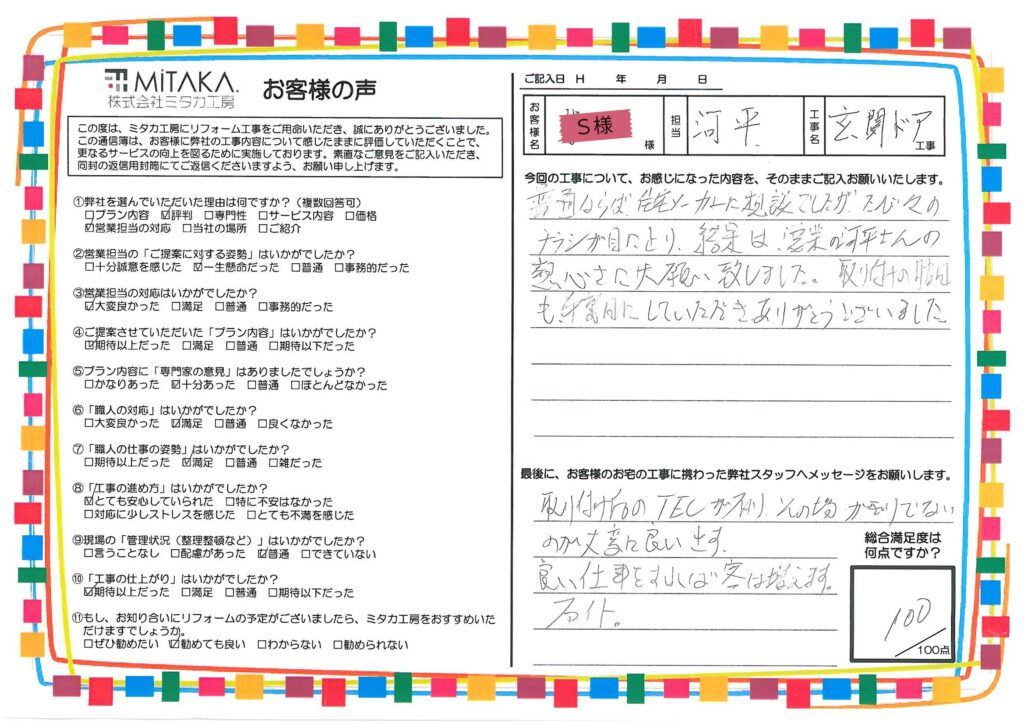 MiTAKA.
株式会社ミタカ工房
お客様の声
この度は、ミタカ工房にリフォーム工事をご用命いただき、誠にありがとうございました。
この通信簿は、お客様に弊社の工事内容について感じたままに評価していただくことで、
更なるサービスの向上を図るために実施しております。素直なご意見をご記入いただき、
同封の返信用封筒にてご返信くださいますよう、お願い申し上げます。
①弊社を選んでいただいた理由は何ですか？（複数回答可）
□プラン内容 ☑評判 □専門性 □サービス内容 □価格
☑営業担当の対応 □当社の場所 □ご紹介
②営業担当の「ご提案に対する姿勢」はいかがでしたか？
□十分誠意を感じた ☑一生懸命だった □普通 □事務的だった
③営業担当の対応はいかがでしたか？
☑大変良かった □満足 □普通 □事務的だった
④ご提案させていただいた「プラン内容」はいかがでしたか？
☑期待以上だった □満足 □普通 □期待以下だった
⑤プラン内容に「専門家の意見」はありましたでしょうか？
□かなりあった ☑十分あった □普通 □ほとんどなかった
⑥「職人の対応」はいかがでしたか？
□大変良かった ☑満足 □普通 □良くなかった
⑦「職人の仕事の姿勢」はいかがでしたか？
□期待以上だった ☑満足 □普通 □雑だった
⑧「工事の進め方」はいかがでしたか？
☑とても安心していられた □特に不安はなかった
□対応に少しストレスを感じた □とても不満を感じた
⑨現場の「管理状況（整理整頓など）」はいかがでしたか？
□言うことなし □配慮があった ☑普通 □できていない
⑩「工事の仕上がり」はいかがでしたか？
☑期待以上だった □満足 □普通 □期待以下だった
⑪もし、お知り合いにリフォームの予定がございましたら、ミタカ工房をおすすめいた
だけますでしょうか。
□ぜひ勧めたい ☑勧めても良い □わからない □勧められない
ご記入日 H 年 月 日
お客様名 S様 様 担当 河平 工事名 玄関ドア 工事
今回の工事について、お感じになった内容を、そのままご記入お願いいたします。
ならば住宅メーカーに相談でしたが
チラシが目にとまり、結果は、営業の河平さんの
熱心さに 致しました。取り付けの
も していただきありがとうございました
最後に、お客様のお宅の工事に携わった弊社スタッフへメッセージをお願いします。
取り付け のTEC その場
のが大変に良いです。
良い仕事をすれば客は増えます。
ファイト。
総合満足度は
何点ですか？
100
／100点